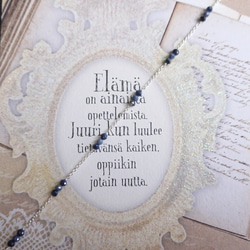 Elämä
on ainaista
opettelemista.
Juuri kun luulee
tietävänsä kaiken,
oppiikin
jotain uutta.